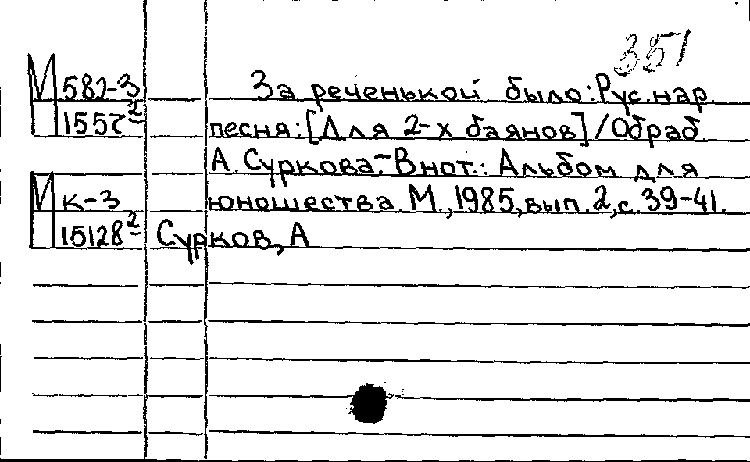 351
М 582-3 За реченькой было: Рус. нар.
1557² песня: [Для 2-х баянов] / Обраб.
А. Суркова. - В нот.: Альбом для
М к-3 юношества. М., 1985, вып. 2, с. 39-41.
15128² Сурков, А